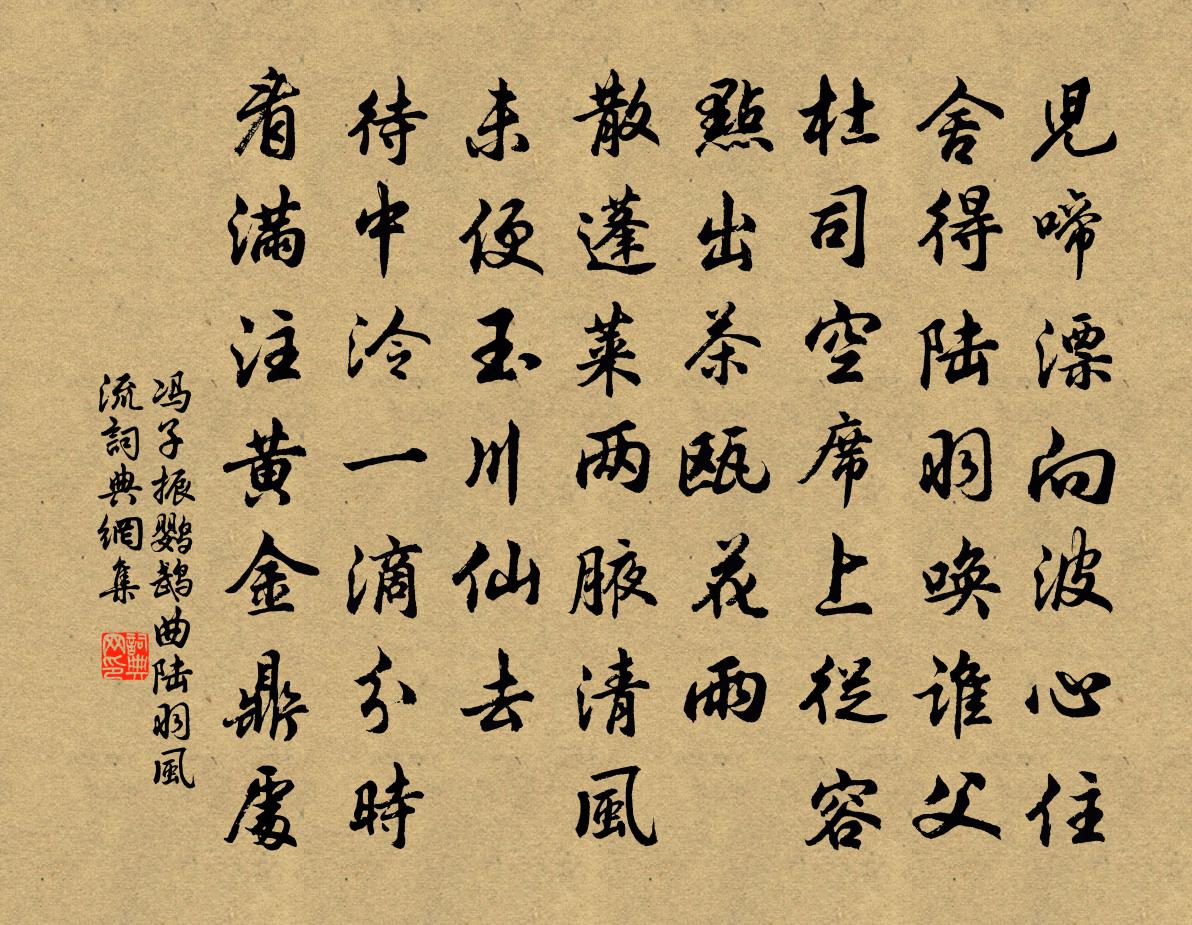 兒啼漂向波心住
舍得陆羽唤谁父
杜司空席上從容
點出茶瓯花雨
散蓬莱两腋清風
未便玉川仙去
待中泠一滴分時
看满注黄金鼎處
冯子振鹦鹉曲陆羽風
流詞典網集
詞典网印